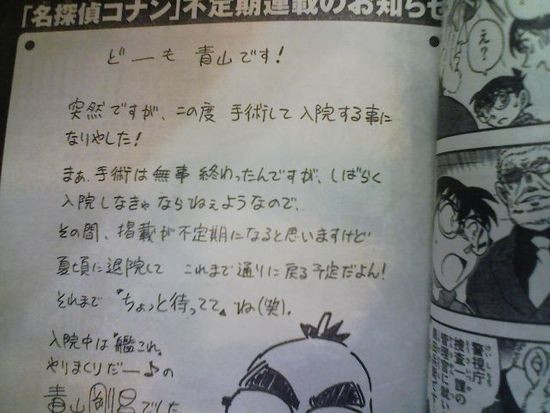 「名探偵コナン」不定期連載のお知らせ
どーも 青山です!
突然ですが、この度 手術して入院する事に
なりやした!
まぁ、手術は無事 終わったんですが、しばらく
入院しなきゃならねぇようなので、
その間、掲載が不定期になると思いますけど
夏頃に退院して これまで通りに戻る予定だよん!
それまで『ちょっと待ってて』ね(笑)。
入院中は『艦これ』
やりまくりだー♪の
青山剛昌でした
え?
警視庁
捜査一課の
管理官に